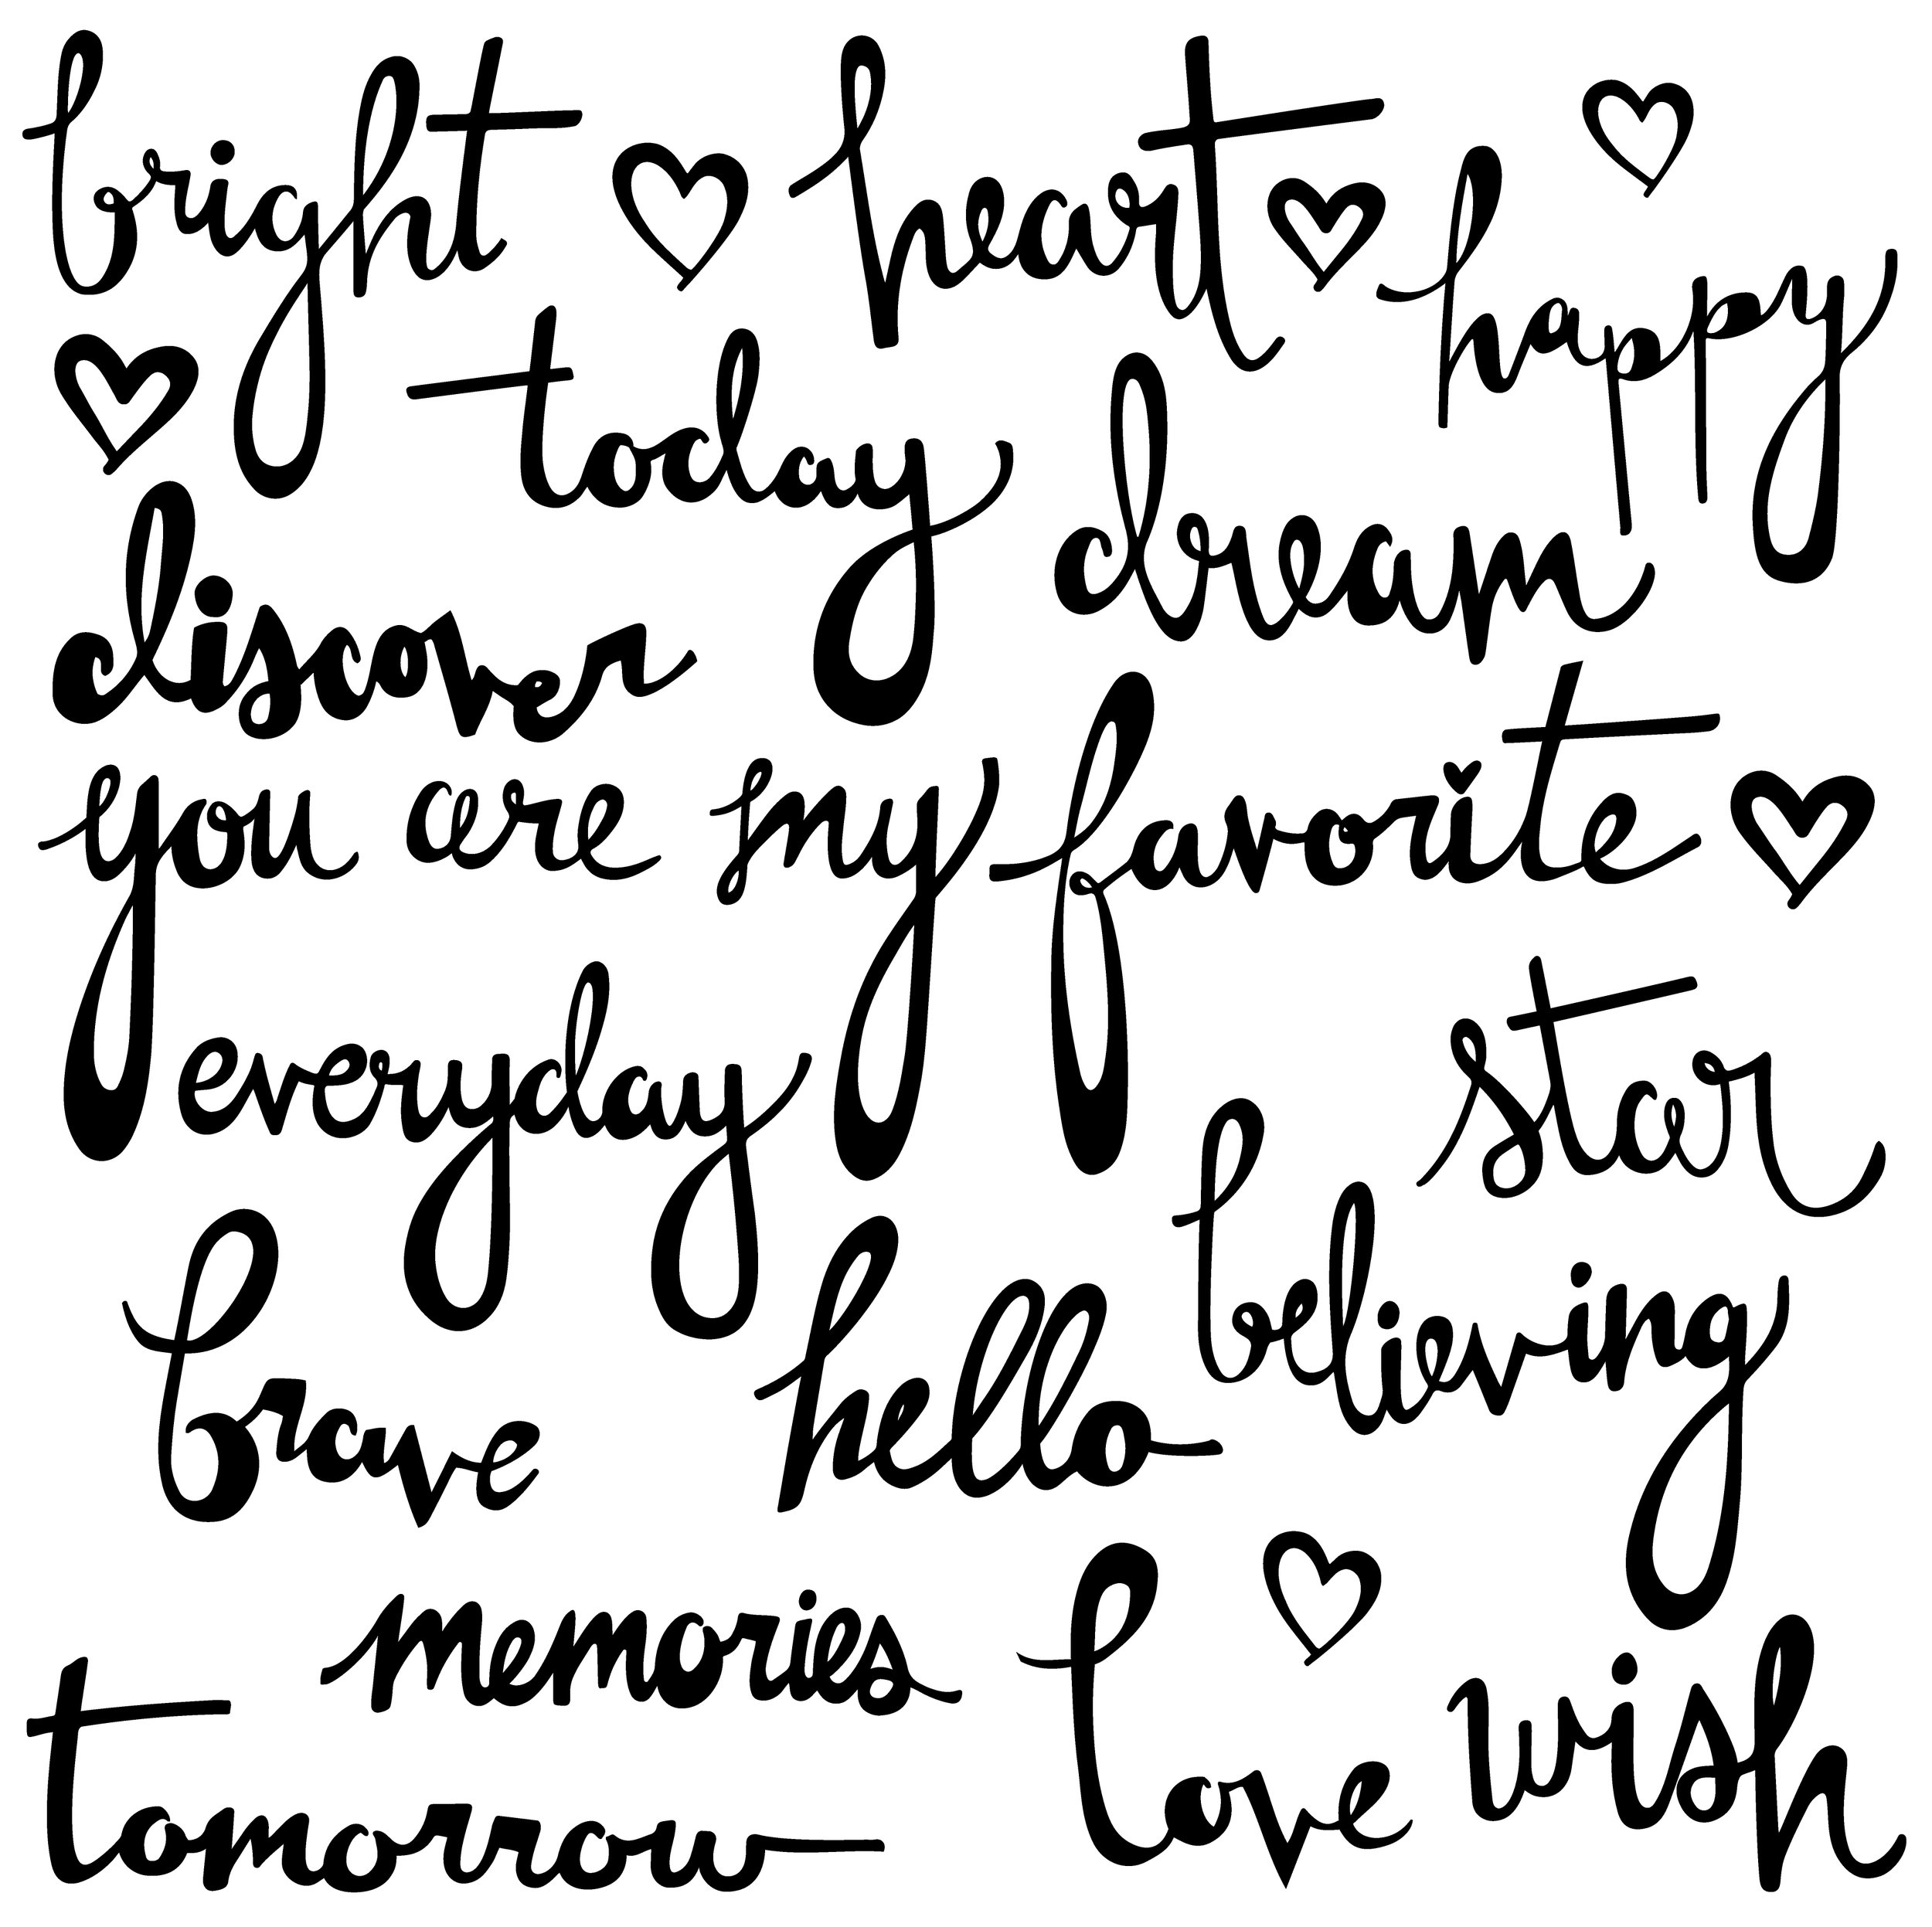 bright heart happy
today dream
discover
you are my favorite
everyday star
believing
brave hello
memories love wish
tomorrow